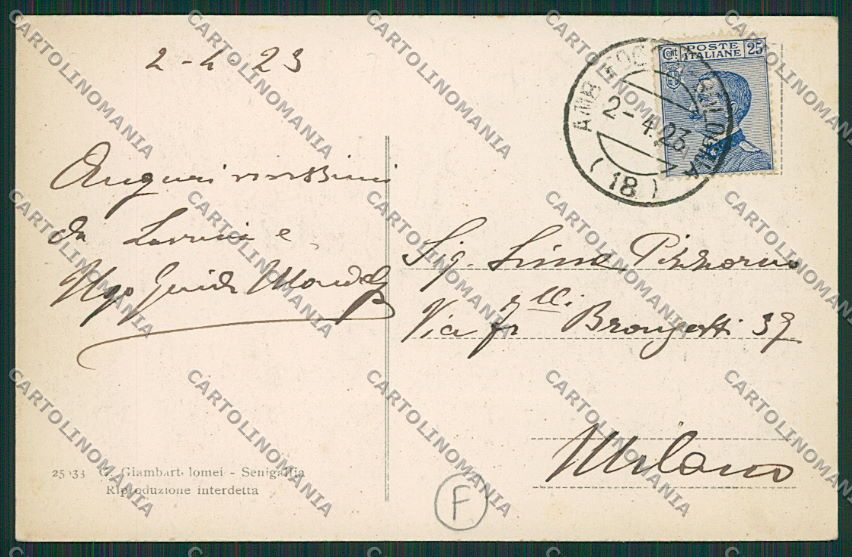 2-4 23
Auguri vivissimi
da Lavinia e
Ugo Guido
Sig. Pizzorno
Via f.lli Bronzetti 37
Milano
25 33 G. Giambart lomei - Senigallia
Riproduzione interdetta
Cent POSTE ITALIANE 25
AMB
2-4.23
(18)
F
CARTOLINOMANIA